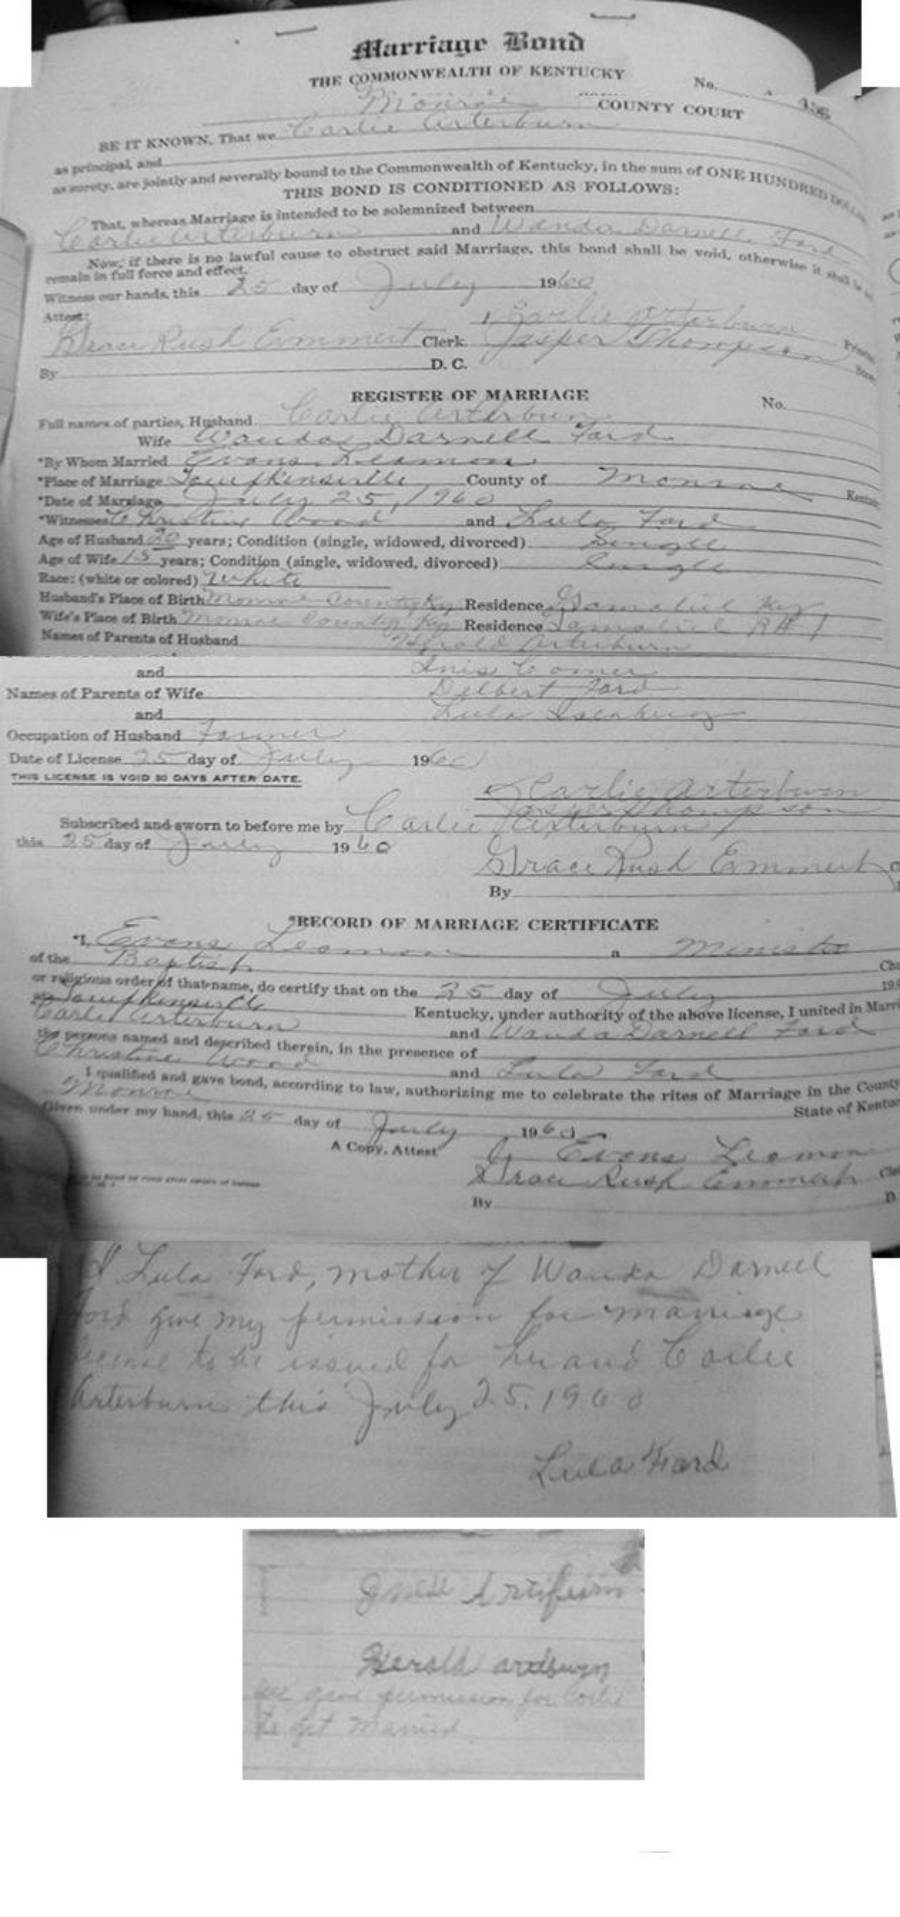 Marriage Bond
THE COMMONWEALTH OF KENTUCKY
No. 456
Monroe COUNTY COURT
BE IT KNOWN, That we Carlie Arterburn
as principal, and
as surety, are jointly and severally bound to the Commonwealth of Kentucky, in the sum of ONE HUNDRED
THIS BOND IS CONDITIONED AS FOLLOWS:
That, whereas Marriage is intended to be solemnized between
Carlie Arterburn and Wanda Darnell Ford
Now, if there is no lawful cause to obstruct said Marriage, this bond shall be void, otherwise it shall
remain in full force and effect.
Witness our hands, this 25 day of July 1960
Attest: Carlie Arterburn
Grace Rush Emmert Clerk. Jasper Thompson
By D. C.
REGISTER OF MARRIAGE
No.
Full names of parties, Husband Carlie Arterburn
Wife Wanda Darnell Ford
*By Whom Married Evans Leamon
*Place of Marriage Tompkinsville County of Monroe
*Date of Marriage July 25, 1960
*Witnesses Christine Wood and Lula Ford
Age of Husband 20 years; Condition (single, widowed, divorced) Single
Age of Wife 15 years; Condition (single, widowed, divorced) Single
Race: (white or colored) White
Husband's Place of Birth Monroe County Ky Residence Gamaliel Ky
Wife's Place of Birth Monroe County Ky Residence Gamaliel R# 1
Names of Parents of Husband Herold Arterburn
and Inis Comer
Names of Parents of Wife Delbert Ford
and Lula
Occupation of Husband Farmer
Date of License 25 day of July 1960
THIS LICENSE IS VOID 30 DAYS AFTER DATE.
Carlie Arterburn
Jasper Thompson
Subscribed and sworn to before me by Carlie Arterburn
this 25 day of July 1960
Grace Rush Emmert
By
*RECORD OF MARRIAGE CERTIFICATE
*I, Evans Leamon a Minister
of the Baptist
or religious order of that name, do certify that on the 25 day of July
Tompkinsville Kentucky, under authority of the above license, I united in
Carlie Arterburn and Wanda Darnell Ford
the persons named and described therein, in the presence of
Christine Wood and Lula Ford
I qualified and gave bond, according to law, authorizing me to celebrate the rites of Marriage in the County
Monroe State of
Given under my hand, this 25 day of July 1960
Evans Leamon
A Copy, Attest Grace Rush Emmert
By
I Lula Ford, mother of Wanda Darnell
Ford give my permission for marriage
license to be issued for her and Carlie
Arterburn this July 25, 1960
Lula Ford
Herold
we give permission for Carlie
to get Married